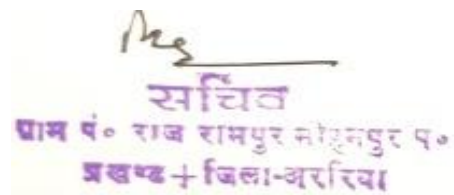 सचिव
ग्राम पं० राज रामपुर मोहनपुर प०
प्रखण्ड + जिला-अररिया